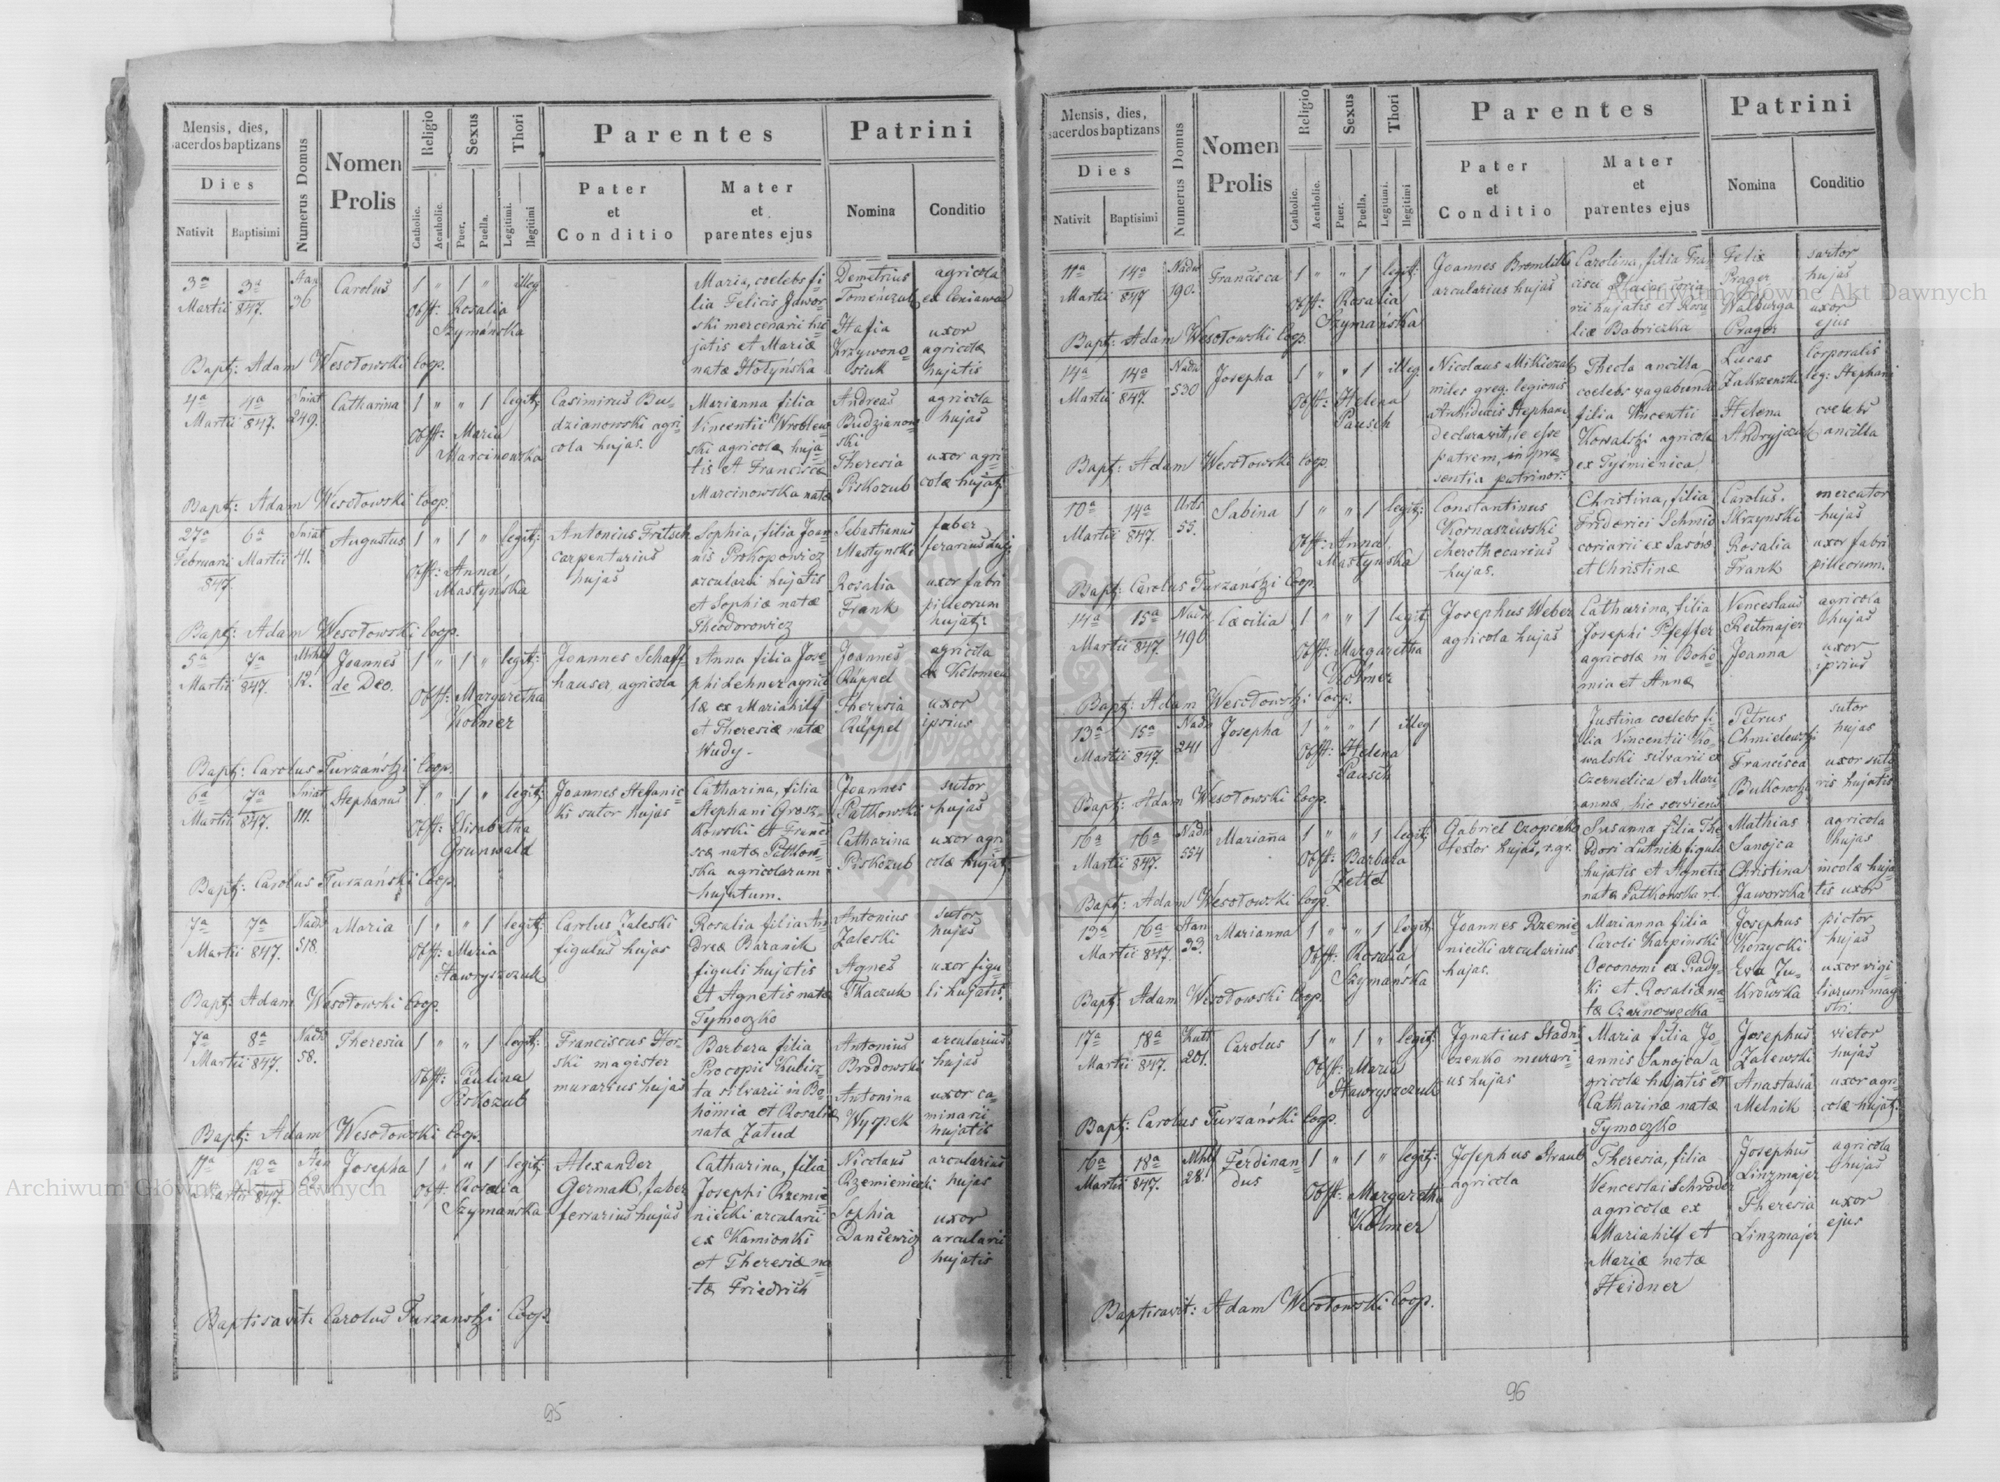 Mensis, dies,
sacerdos baptizans
Dies
Nativit
Baptismi
Numerus Domus
Nomen
Prolis
Religio
Catholic.
Acatholic.
Sexus
Puer.
Puella.
Thori
Legitimi.
Illegitimi
Parentes
Pater
et
Conditio
Mater
et
parentes ejus
Patrini
Nomina
Conditio
3a
Martii
3a
847.
36
Carolus
1 " 1 " illeg
Obst: Rosalia
Szymańska
Maria, coelebs fi-
lia Felicis Jawor-
ski mercenarii hu-
jatis et Mariæ
natæ Hołyńska
Demetrius
Tomenczuk
agricola
uxor
agricolæ
hujatis
Bapt: Adam Wesołowski Coop.
4a
Martii
4a
847.
Sniat
249.
Catharina
1 " " 1 legit:
Obst: Maria
Marcinowska
Casimirus Bu-
dzianowski agri-
cola hujas.
Marianna filia
Vincentii Wroblew-
ski agricolæ huja-
tis et Franciscæ
Marcinowska natæ
Andreas
Budzianow-
ski
Theresia
Piskozub
agricola
hujas
uxor agri-
colæ hujat:
Bapt: Adam Wesołowski Coop.
27a
Februarii
847.
6a
Martii
Sniat
41.
Augustus
1 " 1 " legit:
Obst: Anna
Mastyńska
Antonius Fritsch
carpentarius
hujas
Sophia, filia Joan-
nis Prokopowicz
arcularii hujatis
et Sophiæ natæ
Theodorowicz
Sebastianus
Mastynski
Rosalia
Frank
faber
ferrarius huj:
uxor fabri
pilleorum
hujat:
Bapt: Adam Wesołowski Coop.
5a
Martii
7a
847.
Mrhlf
12.
Joannes
de Deo.
1 " 1 " legit:
Obst: Margaretha
Kolmer
Joannes Schaff-
hauser, agricola
Anna filia Jose-
phi Lehner agrico-
læ ex Mariahilf
et Theresiæ natæ
Wudy.
Joannes
Rüppel
Theresia
Rüppel
agricola
ex Kolomea
uxor
ipsius
Bapt: Carolus Turzański Coop.
6a
Martii
7a
847.
Sniat
111.
Stephanus
1 " 1 " legit:
Obst: Elisabetha
Grunwald
Joannes Stefanic-
ki sutor hujas
Catharina, filia
Stephani Grosz-
kowski et Franci-
scæ natæ Petkow-
ska agricolarum
hujatum.
Joannes
Patkowski
Catharina
Piskozub
sutor
hujas
uxor agri-
colæ hujat:
Bapt: Carolus Turzański Coop.
7a
Martii
7a
847.
Nadw
518.
Maria
1 " " 1 legit:
Obst: Maria
Hawryszczuk
Carolus Zaleski
figulus hujas
Rosalia filia An-
dreæ Baranik
figuli hujatis
et Agnetis natæ
Tymoczko
Antonius
Zaleski
Agnes
Tkaczuk
sutor
hujas
uxor figu-
li hujatis.
Bapt: Adam Wesołowski Coop.
7a
Martii
8a
847.
Nadw
58.
Theresia
1 " " 1 legit:
Obst: Paulina
Piskozub
Franciscus Hor-
ski magister
murarius hujas
Barbara filia
Procopii Kubisz-
ta silvarii in Bo-
hömia et Rosaliæ
natæ Zatud
Antonius
Brodowski
Antonina
Wyspek
arcularius
hujas
uxor ca-
minarii
hujatis
Bapt: Adam Wesołowski Coop.
11a
Martii
12a
847.
Stan
62.
Josepha
1 " " 1 legit:
Obst: Rosalia
Szymańska
Alexander
Germak, faber
ferrarius hujas
Catharina, filia
Josephi Rzemie-
niecki arcularii
ex Kamionki
et Theresiæ na-
tæ Friedrich
Nicolaus
Rzemieniecki
Sophia
Daniewicz
arcularius
hujas
uxor
arcularii
hujatis
Baptisavit: Carolus Turzański Coop.
95
Mensis, dies,
sacerdos baptizans
Dies
Nativit
Baptismi
Numerus Domus
Nomen
Prolis
Religio
Catholic.
Acatholic.
Sexus
Puer.
Puella.
Thori
Legitimi.
Illegitimi
Parentes
Pater
et
Conditio
Mater
et
parentes ejus
Patrini
Nomina
Conditio
11a
Martii
14a
847
Nadw
190.
Francisca
1 " " 1 legit:
Obst: Rosalia
Szymańska
Joannes
arcularius hujas
Carolina, filia Fran-
cisci
rii hujatis et Rosa-
liæ Babriczka
Felix
Prager
Walburga
Prager
sartor
hujas
uxor
ejus
Bapt: Adam Wesołowski Coop.
14a
Martii
14a
847
Nadw
530
Josepha
1 " " 1 illeg
Obst: Helena
Pausch
Nicolaus Mitkiczuk
miles greg: legionis
Archiducis Stephani
declaravit, se esse
patrem, in præ-
sentia patrinor:
Thecla ancilla
coelebs vagabunda
filia Vincentii
Kowalski agricolæ
ex Tyśmienica
Lucas
Zakrzewski
Helena
Andryjczuk
Corporalis
leg: Stephani
coelebs
ancilla
Bapt: Adam Wesołowski Coop.
10a
Martii
14a
847.
Urbs
55.
Sabina
1 " " 1 legit:
Obst: Anna
Mastyńska
Constantinus
Kornaszewski
chirothecarius
hujas.
Christina, filia
Friderici Schmid
coriarii ex Sasów
et Christinæ
Carolus
Skrzynski
Rosalia
Frank
mercator
hujas
uxor fabri
pilleorum.
Bapt: Carolus Turzański Coop.
14a
Martii
15a
847
Nadw
496
Cæcilia
1 " " 1 legit:
Obst: Margaretha
Kolmer
Josephus Weber
agricola hujas
Catharina, filia
Josephi Pfeffer
agricolæ in Bohö-
mia et Annæ
Venceslaus
Reitmajer
Joanna
agricola
hujas
uxor
ipsius
Bapt: Adam Wesołowski Coop.
13a
Martii
15a
847
Nadw
241
Josepha
1 " " 1 illeg
Obst: Helena
Pausch
Justina coelebs fi-
lia Vincentii Ko-
walski silvarii ex
Czernelica et Mari-
annæ, hic serviens
Petrus
Chmielewski
Francisca
Bulkowska
sutor
hujas
uxor suto-
ris hujatis
Bapt: Adam Wesołowski Coop.
16a
Martii
16a
847.
Nadw
554
Mariana
1 " " 1 legit:
Obst: Barbara
Zettel
Gabriel Czopenko
textor hujas, r. gr.
Susanna filia The-
dori Lutnik figuli
hujatis et Agnetis
natæ Patkowska rl.
Mathias
Sanojca
Christina
Jaworska
agricola
hujas
incolæ huja-
tis uxor
Bapt: Adam Wesołowski Coop.
13a
Martii
16a
847.
Stan
33.
Marianna
1 " " 1 legit:
Obst: Rosalia
Szymańska
Joannes Rzemie-
niecki arcularius
hujas.
Marianna filia
Caroli Karpinski
Oeconomi ex Piady-
ki et Rosaliæ na-
tæ Czarnowęcka
Josephus
Korzycki
Eva Zu-
krowska
pictor
hujas
uxor vigi-
liarum magi-
stri.
Bapt: Adam Wesołowski Coop.
17a
Martii
18a
847.
Kutt
201.
Carolus
1 " 1 " legit:
Obst: Maria
Hawryszczuk
Ignatius Stadni-
czenko murari-
us hujas
Maria filia Jo-
annis Sanojca a-
gricolæ hujatis et
Catharinæ natæ
Tymoczko
Josephus
Zalewski
Anastasia
Melnik
vietor
hujas
uxor agri-
colæ hujat:
Bapt: Carolus Turzański Coop.
16a
Martii
18a
847.
Mhlf
28.
Ferdinan-
dus
1 " 1 " legit:
Obst: Margaretha
Kolmer
Josephus Straub
agricola
Theresia, filia
Venceslai Schröder
agricolæ ex
Mariahilf et
Mariæ natæ
Heidner
Josephus
Linzmajer
Theresia
Linzmajer
agricola
hujas
uxor
ejus
Baptisavit: Adam Wesołowski Coop.
96
Archiwum Główne Akt Dawnych
Archiwum Główne Akt Dawnych